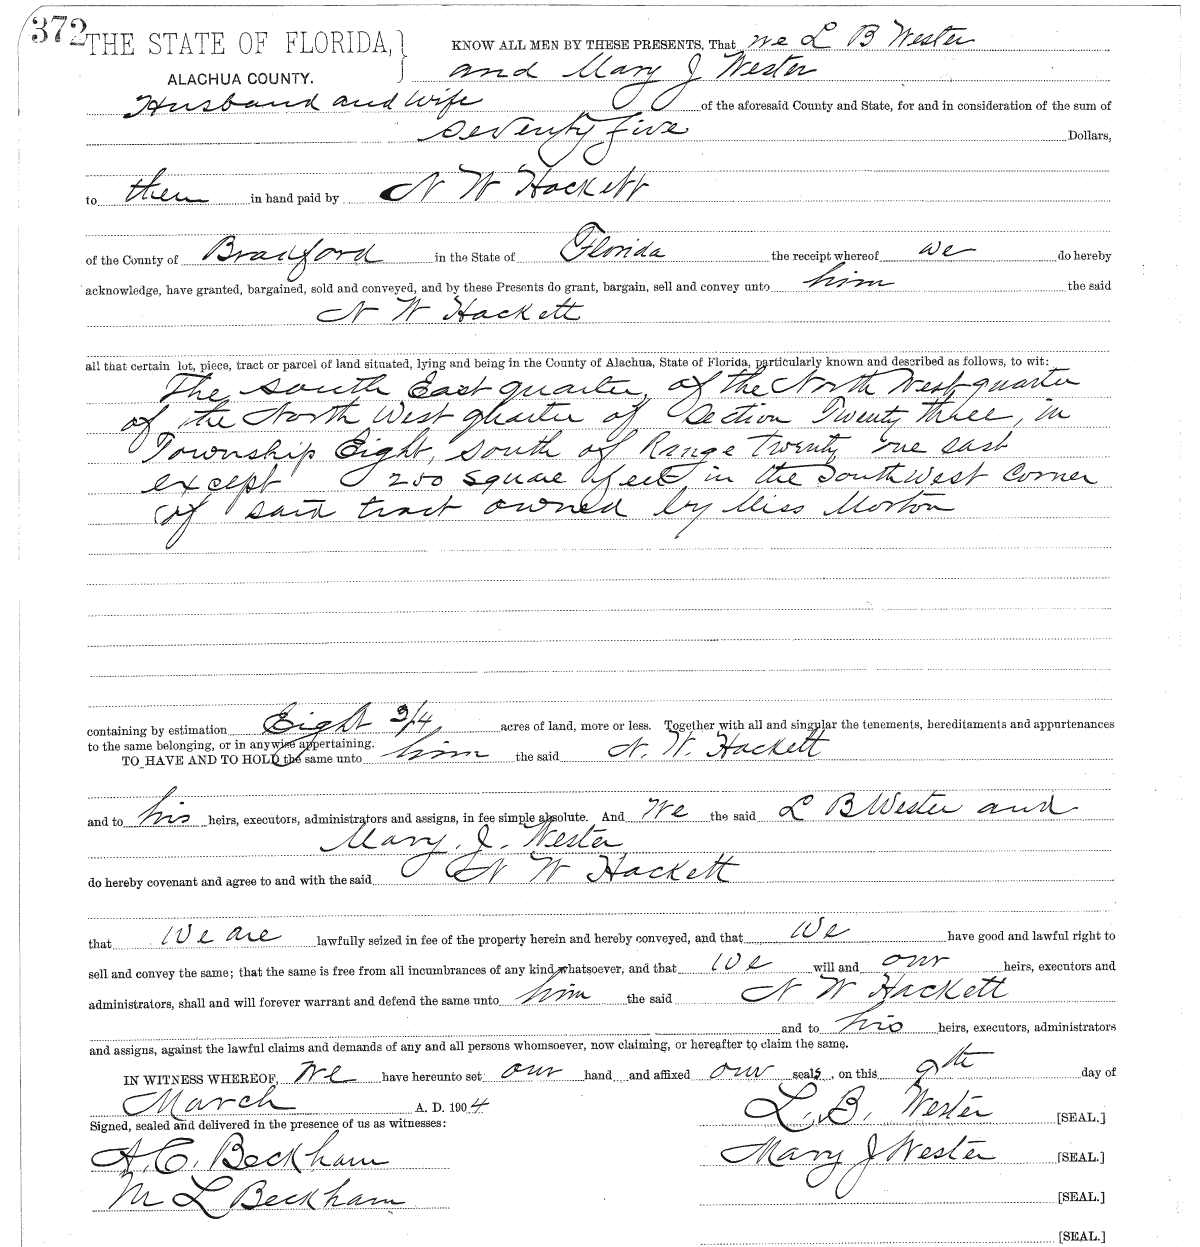 372
THE STATE OF FLORIDA, } KNOW ALL MEN BY THESE PRESENTS, That we L B Wester
ALACHUA COUNTY. and Mary J Wester
Husband and wife of the aforesaid County and State, for and in consideration of the sum of
seventy five Dollars,
to them in hand paid by N W Hackett
of the County of Bradford in the State of Florida the receipt whereof we do hereby
acknowledge, have granted, bargained, sold and conveyed, and by these Presents do grant, bargain, sell and convey unto him the said
N W Hackett
all that certain lot, piece, tract or parcel of land situated, lying and being in the County of Alachua, State of Florida, particularly known and described as follows, to wit:
The south East quarter of the North West quarter
of the North West quarter of Section Twenty three, in
Township Eight, south of Range twenty one east
except 200 square feet in the South West corner
of said tract owned by Miss Morton
containing by estimation Eight 3/4 acres of land, more or less. Together with all and singular the tenements, hereditaments and appurtenances
to the same belonging, or in anywise appertaining.
TO HAVE AND TO HOLD the same unto him the said N. W. Hackett
and to his heirs, executors, administrators and assigns, in fee simple absolute. And We the said L B Wester and
Mary. J. Wester
do hereby covenant and agree to and with the said N W Hackett
that We are lawfully seized in fee of the property herein and hereby conveyed, and that We have good and lawful right to
sell and convey the same; that the same is free from all incumbrances of any kind whatsoever, and that We will and our heirs, executors and
administrators, shall and will forever warrant and defend the same unto him the said N W Hackett
and to his heirs, executors, administrators
and assigns, against the lawful claims and demands of any and all persons whomsoever, now claiming, or hereafter to claim the same.
IN WITNESS WHEREOF, We have hereunto set our hand and affixed our seals, on this 9th day of
March A. D. 1904 L. B. Wester [SEAL.]
Signed, sealed and delivered in the presence of us as witnesses:
A. C. Beckham Mary J Wester [SEAL.]
M L Beckham [SEAL.]
[SEAL.]